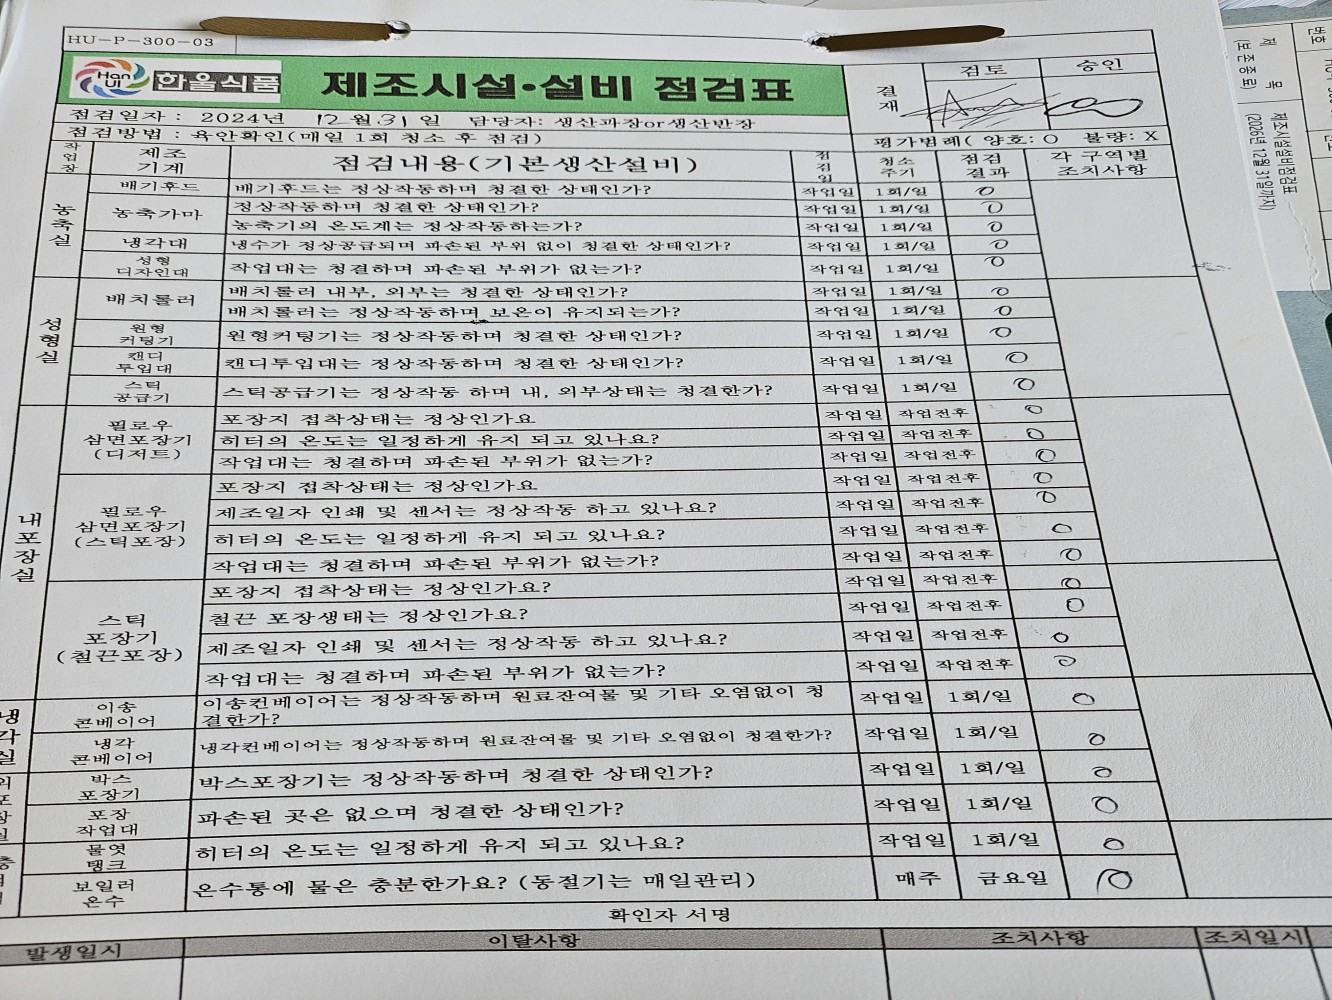 HU-P-300-03
Han
Ul
한울식품 제조시설·설비 점검표
결재 검토 승인
점검일자 : 2024년 12월 31일 담당자: 생산과장or생산반장
점검방법 : 육안확인(매일 1회 청소 후 점검) 평가범례( 양호: O 불량: X
작업장 제조기계 점검내용(기본생산설비) 점검일 청소주기 점검결과 각 구역별 조치사항
농축실 배기후드 배기후드는 정상작동하며 청결한 상태인가? 작업일 1회/일 O
농축가마 정상작동하며 청결한 상태인가? 작업일 1회/일 O
농축기의 온도계는 정상작동하는가? 작업일 1회/일 O
냉각대 냉수가 정상공급되며 파손된 부위 없이 청결한 상태인가? 작업일 1회/일 O
성형디자인대 작업대는 청결하며 파손된 부위가 없는가? 작업일 1회/일 O
성형실 배치롤러 배치롤러 내부, 외부는 청결한 상태인가? 작업일 1회/일 O
배치롤러는 정상작동하며 보온이 유지되는가? 작업일 1회/일 O
원형커팅기 원형커팅기는 정상작동하며 청결한 상태인가? 작업일 1회/일 O
캔디투입대 캔디투입대는 정상작동하며 청결한 상태인가? 작업일 1회/일 O
스틱공급기 스틱공급기는 정상작동 하며 내, 외부상태는 청결한가? 작업일 1회/일 O
내포장실 필로우삼면포장기(디저트) 포장지 접착상태는 정상인가요 작업일 작업전후 O
히터의 온도는 일정하게 유지 되고 있나요? 작업일 작업전후 O
작업대는 청결하며 파손된 부위가 없는가? 작업일 작업전후 O
필로우삼면포장기(스틱포장) 포장지 접착상태는 정상인가요 작업일 작업전후 O
제조일자 인쇄 및 센서는 정상작동 하고 있나요? 작업일 작업전후 O
히터의 온도는 일정하게 유지 되고 있나요? 작업일 작업전후 O
작업대는 청결하며 파손된 부위가 없는가? 작업일 작업전후 O
스틱포장기(철끈포장) 포장지 접착상태는 정상인가요? 작업일 작업전후 O
철끈 포장생태는 정상인가요? 작업일 작업전후 O
제조일자 인쇄 및 센서는 정상작동 하고 있나요? 작업일 작업전후 O
작업대는 청결하며 파손된 부위가 없는가? 작업일 작업전후 O
냉각실 이송콘베이어 이송컨베이어는 정상작동하며 원료잔여물 및 기타 오염없이 청결한가? 작업일 1회/일 O
냉각콘베이어 냉각컨베이어는 정상작동하며 원료잔여물 및 기타 오염없이 청결한가? 작업일 1회/일 O
박스포장기 박스포장기는 정상작동하며 청결한 상태인가? 작업일 1회/일 O
포장작업대 파손된 곳은 없으며 청결한 상태인가? 작업일 1회/일 O
물엿탱크 히터의 온도는 일정하게 유지 되고 있나요? 작업일 1회/일 O
보일러온수 온수통에 물은 충분한가요? (동절기는 매일관리) 매주 금요일 O
확인자 서명
발생일시 이탈사항 조치사항 조치일시
제 목
(보존종료)
제조시설설비점검표
(2026년 12월 31일까지)
번호